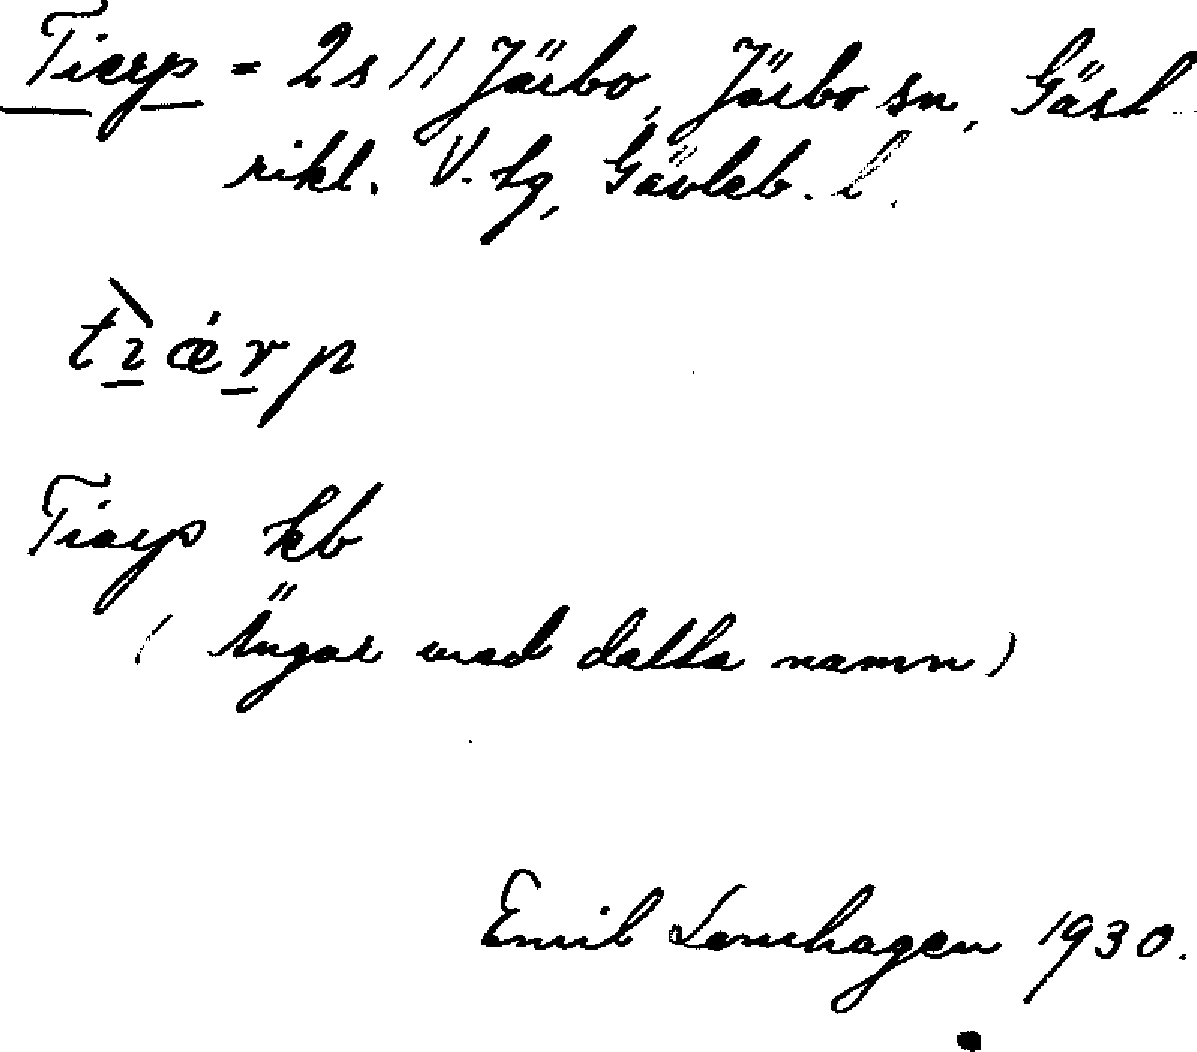 Tierp = 2s 11 Järbo, Järbo sn, Gäst-
rikl. V. tg, Gävleb. l.
tìærp
Tierp kb
(Ängar med detta namn)
Emil Lennhagen 1930.